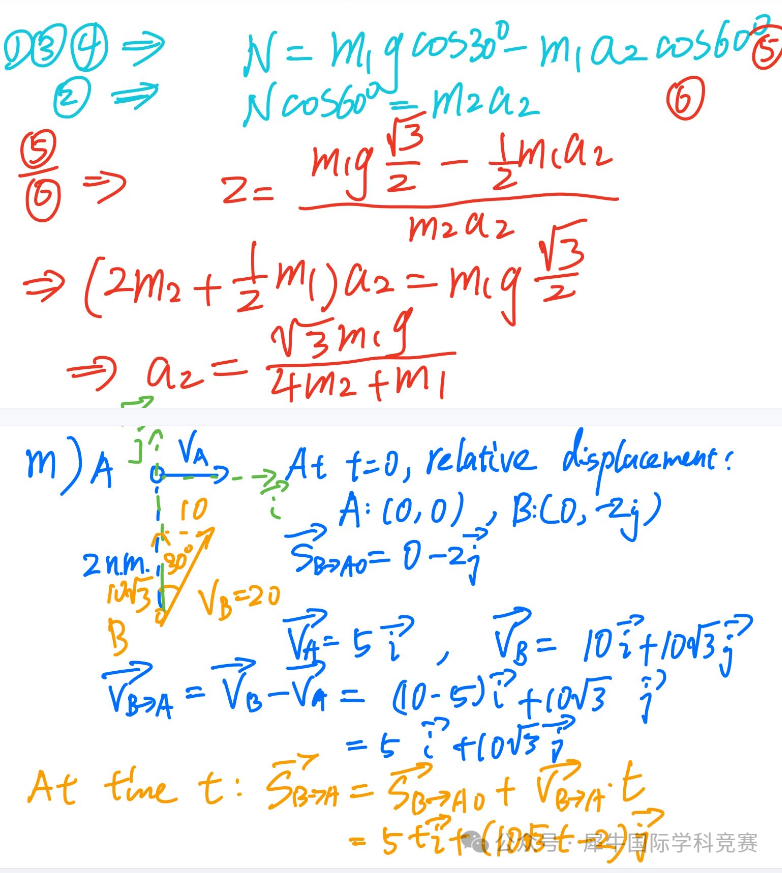 ①③④ ⇒ N = m₁g cos30° − m₁a₂ cos60° ⑤
② ⇒ N cos60° = m₂a₂ ⑥
⑤/⑥ ⇒ 2 = (m₁g √3/2 − 1/2 m₁a₂)/(m₂a₂)
⇒ (2m₂ + 1/2 m₁)a₂ = m₁g √3/2
⇒ a₂ = √3 m₁g/(4m₂ + m₁)
m) A V_A j⃗ i⃗ At t=0, relative displacement:
10 A: (0, 0), B: (0, -2j)
2 n.m. 30° S⃗_B→A0 = 0 − 2j⃗
10√3 V_B = 20
B V⃗_A = 5i⃗, V⃗_B = 10i⃗ + 10√3j⃗
V⃗_B→A = V⃗_B − V⃗_A = (10−5)i⃗ + 10√3 j⃗
= 5i⃗ + 10√3j⃗
At time t: S⃗_B→A = S⃗_B→A0 + V⃗_B→A · t
= 5ti⃗ + (10√3t − 2)j⃗
公众号 · 犀牛国际学科竞赛